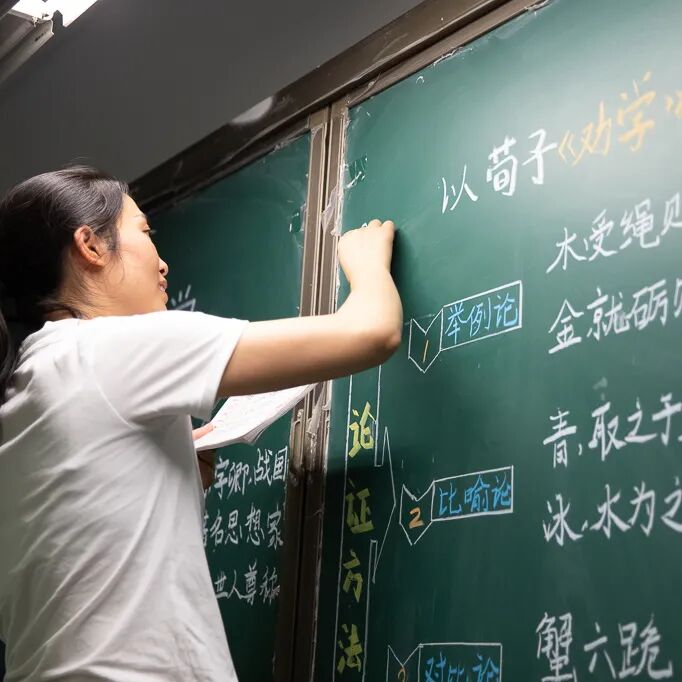 学
字卿,战国
著名思想家
世人尊称
以荀子《劝学
木受绳则
金就砺则
1 举例论
青,取之于
论证方法
2 比喻论
冰,水为之
对比论
蟹六跪